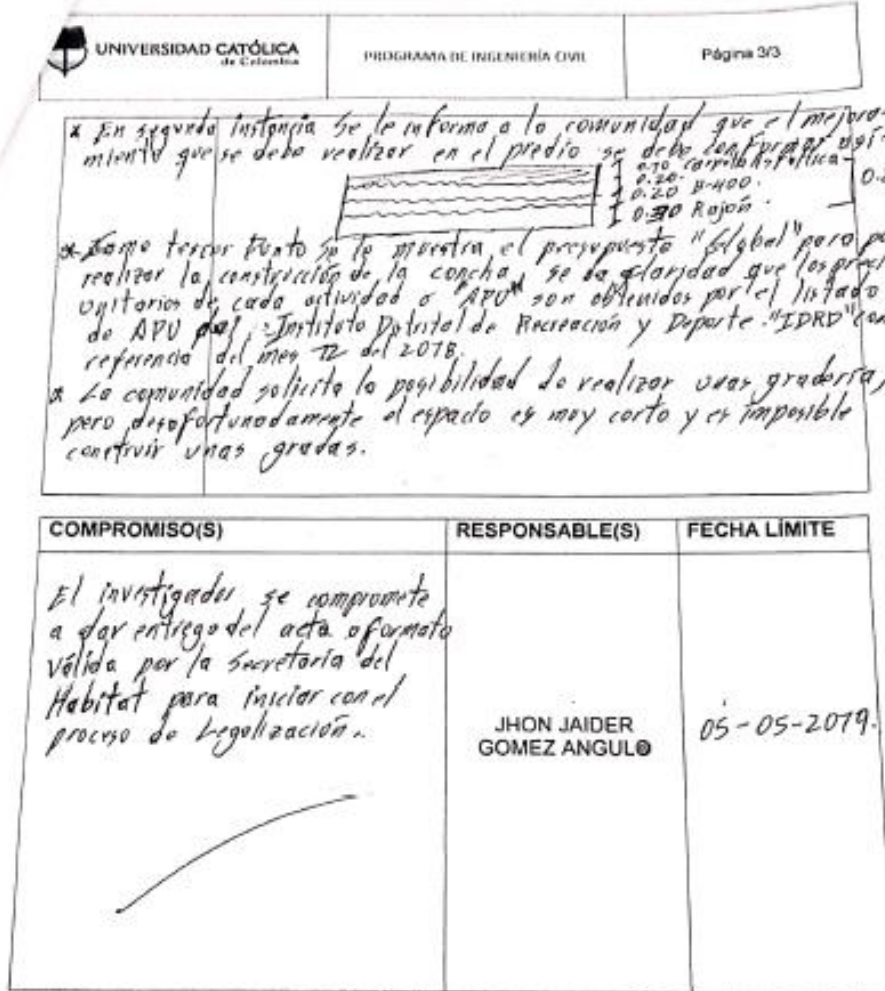 UNIVERSIDAD CATÓLICA
de Colombia
PROGRAMA DE INGENIERÍA CIVIL
Página 3/3
* En segunda instancia se le informa a la comunidad que el mejora-
miento que se debe realizar en el predio se debe conformar así:
0.10 Carpeta asfaltica
0.20.
0.20 B-400.
0.30 Rajón.
* Como tercer Punto se le muestra el presupuesto "Global" para
realizar la construcción de la concha, se da claridad que los
unitarios de cada actividad o "APU" son obtenidos por el listado
de APU del Instituto Distrital de Recreación y Deporte "IDRD" con
referencia del mes 12 del 2018.
* La comunidad solicita la posibilidad de realizar unas gradería,
pero desafortunadamente el espacio es muy corto y es imposible
construir unas gradas.
COMPROMISO(S)
RESPONSABLE(S)
FECHA LÍMITE
El investigador se compromete
a dar entrega del acta o formato
válida por la Secretaría del
Habitat para iniciar con el
proceso de Legalización.
JHON JAIDER
GOMEZ ANGULO
05-05-2019.